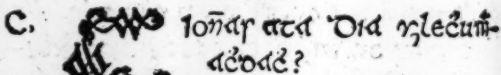 C. Cion̄as ata Dia uileċuṁ-
aċdaċ?